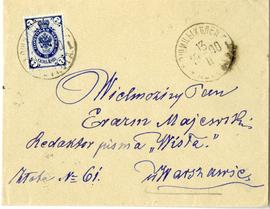 Wielmożny Pan
Erazm Majewski
Redaktor pisma „Wisła."
w Warszawie
Złota № 61.